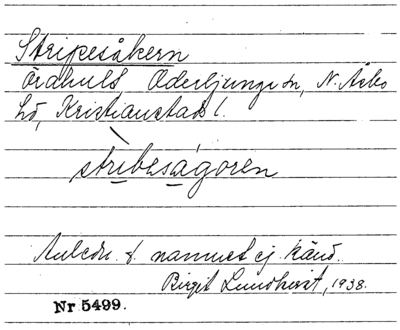 Stripesåkern
Ördhult, Oderljunga sn, N. Åsbo
hd, Kristianstads l.
stribesågoren
Anledn. t. namnet ej känd.
Birgit Lundkvist, 1938.
Nr 5499.